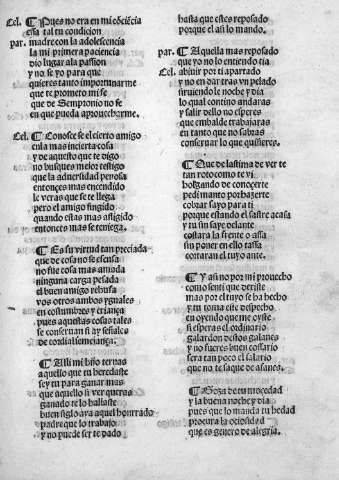 Cel. ¶ Pues no era en mi cõciẽcia
essa tal tu condicion
par. madre con la adolescencia
la mi primera paciencia
dio lugar ala passion
y no se yo para que
quieres tanto importunarme
que te prometo mi fe
que de Sempronio no se
en que pueda aprouecharme.
Cel. ¶ Conosce se el cierto amigo
en la mas incierta cosa
y de aquesto que te digo
no busques mejor testigo
que la aduersidad penosa
entonces mas encendido
le veras que se te llega
pero el amigo fingido
quando estas mas afligido
entonces mas se te niega.
¶ Es su virtud tan preciada
que de cosa no se escusa
no fue cosa mas amada
ninguna carga pesada
el buen amigo rehusa
vos otros ambos yguales
en costumbres y criança
pues aquestas cosas tales
se conseruan si ay señales
de cordial semejança.
¶ Alli mi hijo ternas
aquello que tu heredaste
se y tu para ganar mas
que aquello si ver querras
ganado te lo hallaste
buen siglo aya aquel hourrado
padre que lo trabajo
y no puede ser te dado
hasta que estes reposado
porque el assi lo mando.
par. ¶ Aquella mas reposado
que yo no lo entiendo tia
Cel. a biuir por ti apartado
y no en dar tras vn pelado
siruiendo le noche y dia
lo qual contino andaras
y salir dello no esperes
que embalde trabajaras
en tanto que no sabras
conseruar lo que quisieres.
¶ Que de lastima de ver te
tan roto como te vi
holgando de conocerte
pedi manto por hazerte
cobrar sayo para ti
porque estando el sastre acasa
y tu sin saye delante
costara la fuente o assa
sin poner en ello tassa
cortaran el tuyo ante.
¶ Y assi no por mi prouecho
como senti que dexiste
mas por el tuyo se ha hecho
y tu toma este despecho
en oyendo que me oyste
si esperas el ordinario
galardon destos galanes
y no fueres buen cossario
sera tan poco el salario
que no te saque de afanes.
¶ Goza de tu mocedad
y la buena noche y dia
pues que lo manda tu hedad
procura la ociosidad
que es genero de alegria.